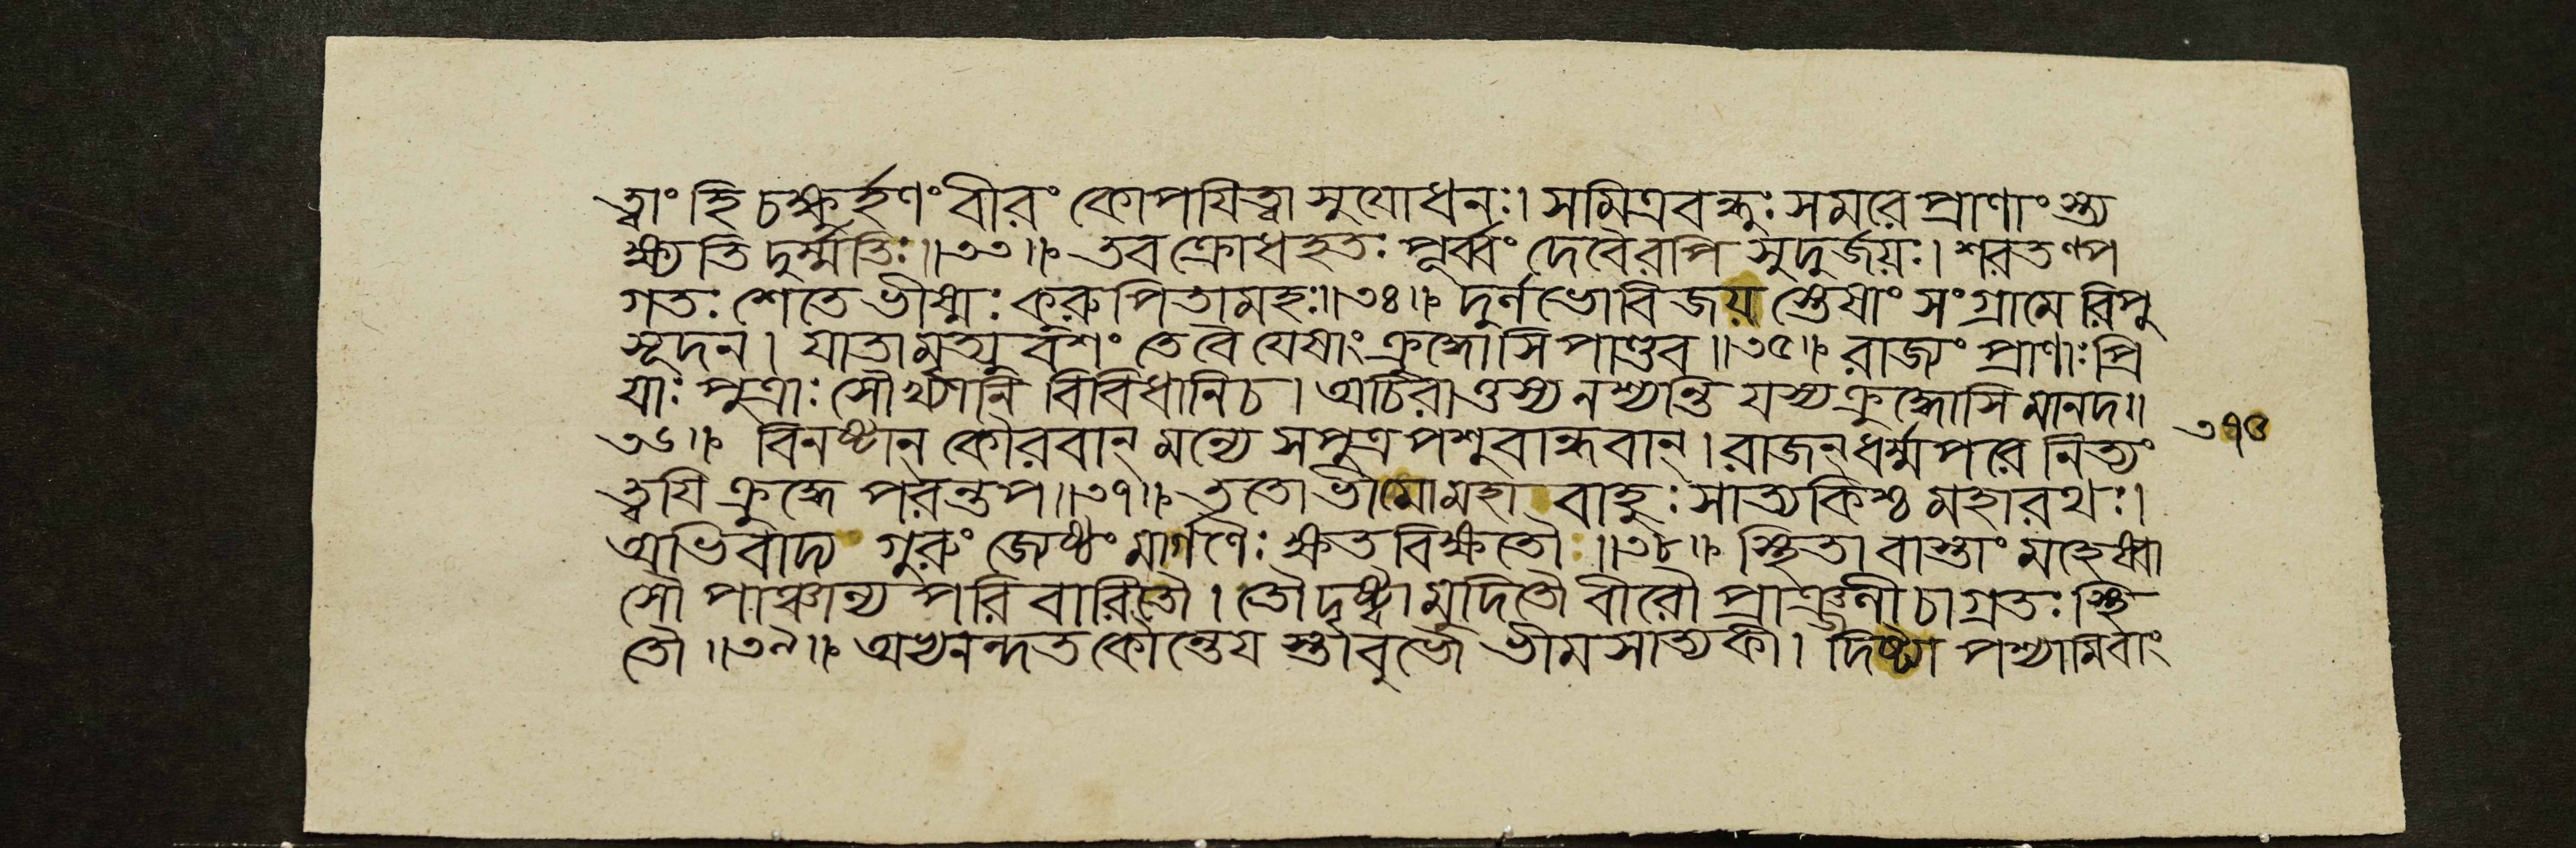 ত্বাং হি চক্ষুর্হণং বীরং কোপযিত্বা সুযোধনঃ। সমিত্রবন্ধুঃ সমরে প্রাণাংস্ত্য
ক্ষ্যতি দুর্ম্মতিঃ॥৩৩॥ তব ক্রোধহতঃ পূর্ব্বং দেবৈরপি সুদুর্জয়ঃ। শরতল্প
গতঃ শেতে ভীষ্মঃ করুপিতামহঃ॥৩৪॥ দুর্লভো বিজয়স্তেষাং সংগ্রামে রিপু
সূদন। যাতা মৃত্যুবশং তে বৈ যেষাং ক্রুদ্ধোসি পাণ্ডব॥৩৫॥ রাজ্যং প্রাণাঃ প্রি
যাঃ পুত্রাঃ সৌখ্যানি বিবিধানি চ। অচিরাত্তস্য নশ্যন্তি যস্য ক্রুদ্ধোসি মানদ॥
৩৬॥ বিনষ্টান্ কৌরবান্ মন্যে সপুত্রপশুবান্ধবান্। রাজন্ ধর্ম্মপরে নিত্যং
ত্বযি ক্রুদ্ধে পরন্তপ॥৩৭॥ ততো ভীমো মহা বাহুঃ সাত্যকিশ্চ মহারথঃ।
অভিবাদ্য গুরুং জেষ্ঠং মার্গণৈঃ ক্ষতবিক্ষতৌ॥৩৮॥ স্থিতা বাস্তাং মহেষ্বা
সৌ পাঞ্চাল্য পরিবারিতৌ। তৌ দৃষ্ট্বা মুদিতৌ বীরৌ প্রাঞ্জলী চাগ্রতঃ স্থি
তৌ॥৩৯॥ অভ্যনন্দত কৌন্তেয স্তাবুভৌ ভীমসাত্যকী। দিষ্ট্যা পশ্যামি বাং
৩৭৫